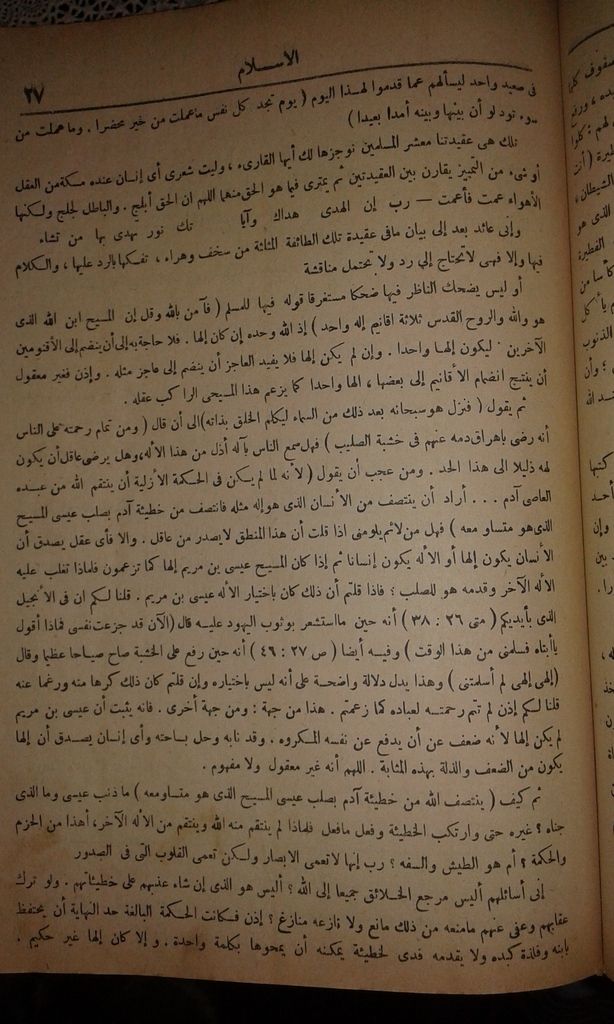 الاسلام
٢٧
فى صعيد واحد ليسألهم عما قدموا لهذا اليوم ( يوم تجد كل نفس ماعملت من خير محضرا . وما عملت من
سوء تودلو أن بينها وبينه أمدا بعيدا )
تلك هى عقيدتنا معشر المسلمين نوجزها لك أيها القارىء ، وليت شعرى أى إنسان عنده مسكة من العقل
أو شىء من التمييز يقارن بين العقيدتين ثم يمترى فيما هو الحق منهما اللهم ان الحق أبلج . والباطل لجلج ولكنها
الأهواء عمت فأعمت — رب إن الهدى هداك وآيا تك نور تهدى بها من تشاء
وإنى عائد بعد إلى بيان مافى عقيدة تلك الطائفة المثلثة من سخف وهراء ، تفكها بالرد عليها ، والكلام
فيها وإلا فهى لاتحتاج إلى رد ولا تحتمل مناقشة
أو ليس يضحك الناظر فيها ضحكا مستغرقا قوله فيها للمسلم ( فآمن بالله وقل إن المسيح ابن الله الذى
هو والله والروح القدس ثلاثة اقانيم إله واحد ) إذ الله وحده إن كان إلها . فلا حاجة به إلى أن ينضم إلى الأقنومين
الآخرين ليكون إلهـا واحدا . وإن لم يكن إلها فلا يفيد العاجز أن ينضم إلى عاجز مثله . وإذن فغير معقول
أن ينتج انضمام الأقانيم إلى بعضها ، الها واحدا كما يزعم هذا المسيحى الراكب عقله .
ثم يقول ( فنزل هو سبحانه بعد ذلك من السماء ليكلم الخلق بذاته) الى أن قال ( ومن تمام رحمته على الناس
أنه رضى باهراق دمه عنهم فى خشبة الصليب ) فهل سمع الناس بآله أذل من هذا الأله، وهل يرضى عاقل أن يكون
لهه ذليلا الى هذا الحد . ومن عجب أن يقول ( لأنه لما لم يـكن فى الحكمة الأزلية أن ينتقم الله من عبـده
العاصى آدم . . . أراد أن ينتصف من الأنسان الذى هو إله مثله فانتصف من خطيئة آدم بصلب عيسى المسيح
الذى هو متساو معه ) فهل من لائم يلومنى اذا قلت أن هذا المنطق لايصدر من عاقل . والا فأى عقل يصدق أن
الأنسان يكون إلها أو الأله يكون إنسانا ثم إذا كان المسيح عيسى بن مريم إلها كما تزعمون فلماذا تغلب عليه
الأله الآخر وقدمه هو للصلب ؛ فاذا قلتم أن ذلك كان باختيار الأله عيسى بن مريم . قلنا لكم ان فى الأنجيل
الذى بأيديكم ( متى ٢٦ : ٣٨ ) أنه حين مااستشعر بوثوب اليهود عليـه قال (الآن قد جزعت نفسى فماذا أقول
ياأبتاه فسلمنى من هذا الوقت ) وفيـه أيضا ( ص ٢٧ : ٤٦ ) أنه حين رفع على الخشبة صاح صياحا عظيما وقال
(إلهى إلهى لم أسلمتنى ) وهذا يدل دلالة واضحـة على أنه ليس باختياره وإن قلتم كان ذلك كرها منه ورغما عنه
قلنا لـكم إذن لم تتم رحمتـه لعباده كما زعمتم . هذا من جهة ؛ ومن جهة أخرى . فانه يثبت أن عيسى بن مريم
لم يكن إلها لأنه ضعف عن أن يدفع عن نفسه المـكروه . وقد نابه وحل بساحته وأى إنسان يصـدق أن إلها
يكون من الضعف والذلة بهذه المثابة . اللهم أنه غير معقول ولا مفهوم .
ثم كيف ( ينتصف الله من خطيئة آدم بصلب عيسى المسيح الذى هو متساو معه ) ما ذنب عيسى وما الذى
جناه ؟ غيره حتى وارتكب الخطيئة وفعل مافعل فلماذا لم ينتقم منه الله وينتقم من الأله الآخر، أهذا من الحزم
والحكمة ؟ أم هو الطيش والسفه ؟ رب إنها لاتعمى الابصار ولـكن تعمى القلوب التى فى الصدور
إنى أسائلهم أليس مرجع الخـلائق جميعا إلى الله ؟ أليس هو الذى إن شاء عذبهم على خطيئاتهم . ولو ترك
عقابهم وعفى عنهم مامنعه من ذلك مانع ولا نازعه منازع ؟ إذن فـكانت الحـكمة البالغة حد النهاية أن يحتفظ
بابنه وفلذة كبده ولا يقدمه فدى لخطيئة يمكنه أن يمحوها بكلمة واحدة . و إلا كان إلها غير حكيم .